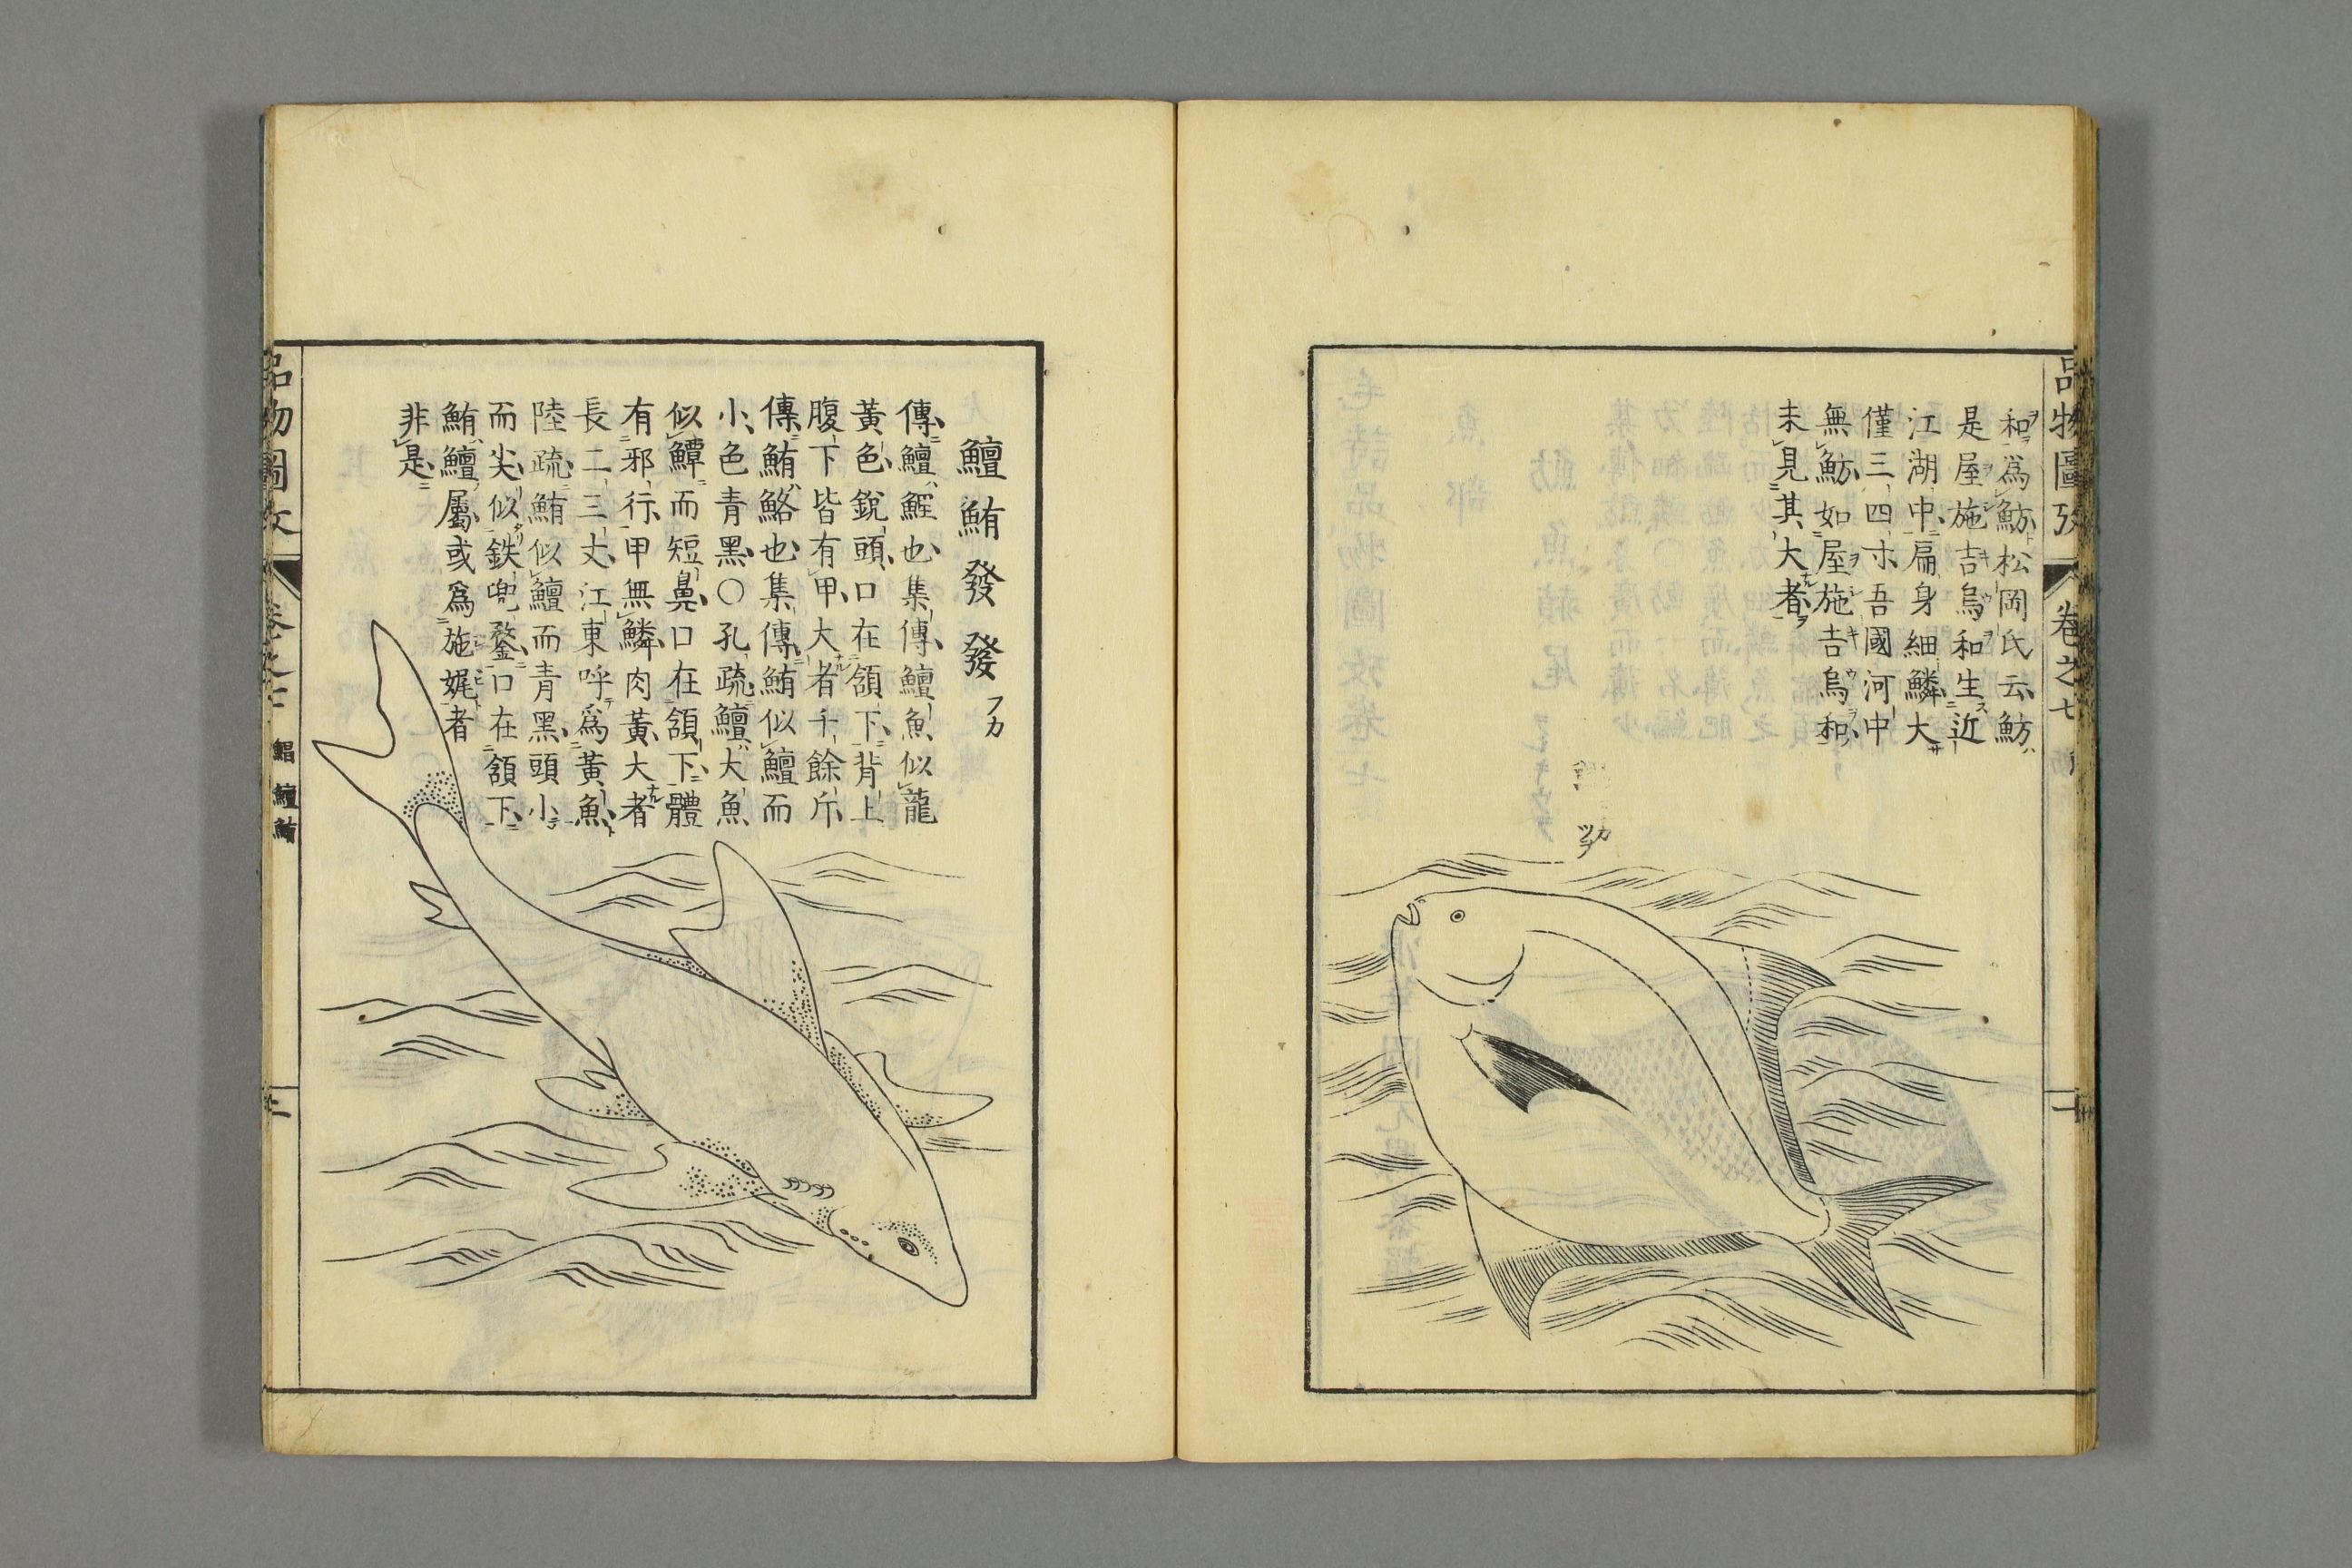 品物圖攷
卷之七
和爲魴松岡氏云魴
是屋施吉烏和生近
江湖中扁身細鱗大
僅三四寸吾國河中
無魴如屋施吉烏和
未見其大者
鱣鮪發發 フカ
傳鱣鯉也集傳鱣魚似龍
黃色銳頭口在頷下背上
腹下皆有甲大者千餘斤
傳鮪鮥也集傳鮪似鱣而
小色青黑〇孔疏鱣大魚
似鱏而短鼻口在頷下體
有邪行甲無鱗肉黃大者
長二三丈江東呼爲黃魚
陸疏鮪似鱣而青黑頭小
而尖似鉄兜鍪口在頷下
鮪鱣屬或爲施媿者
非是
品物圖攷
卷之七
鱣鮪
二